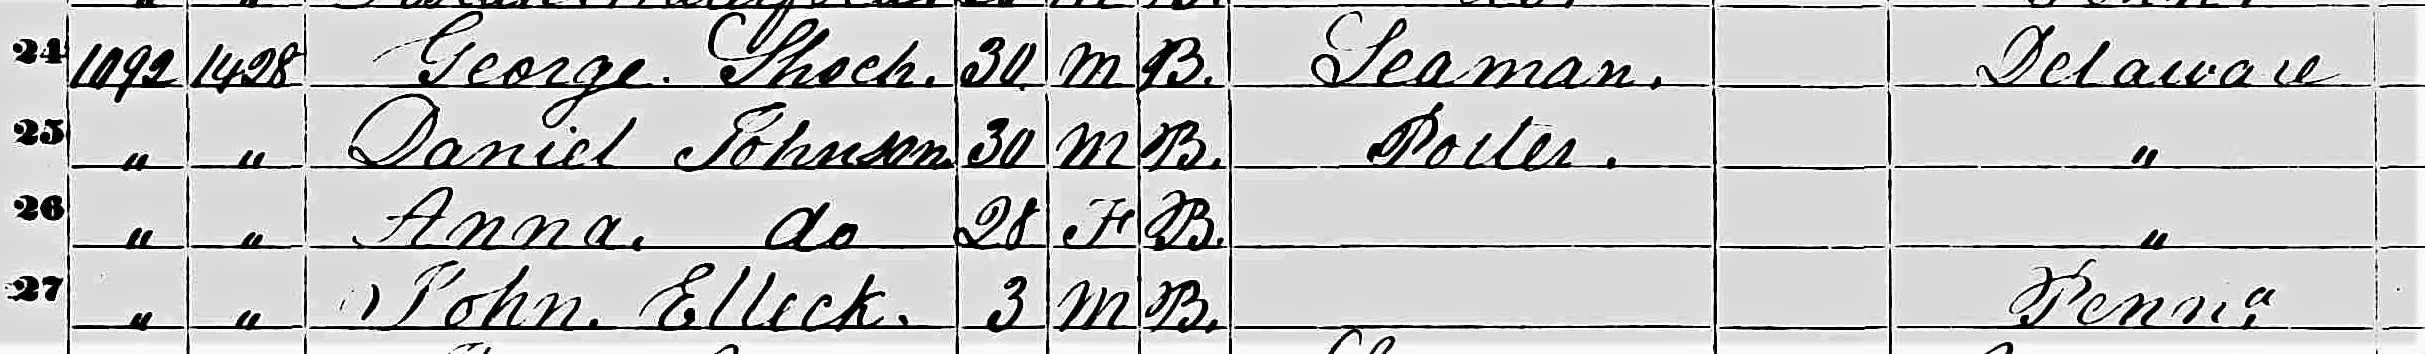 24 1092 1428 George. Shoch. 30. M B. Seaman. Delaware
25 " " Daniel Johnson. 30 M B. Porter. "
26 " " Anna. do 28 F B. "
27 " " John. Elleck. 3 M B. Penn.a